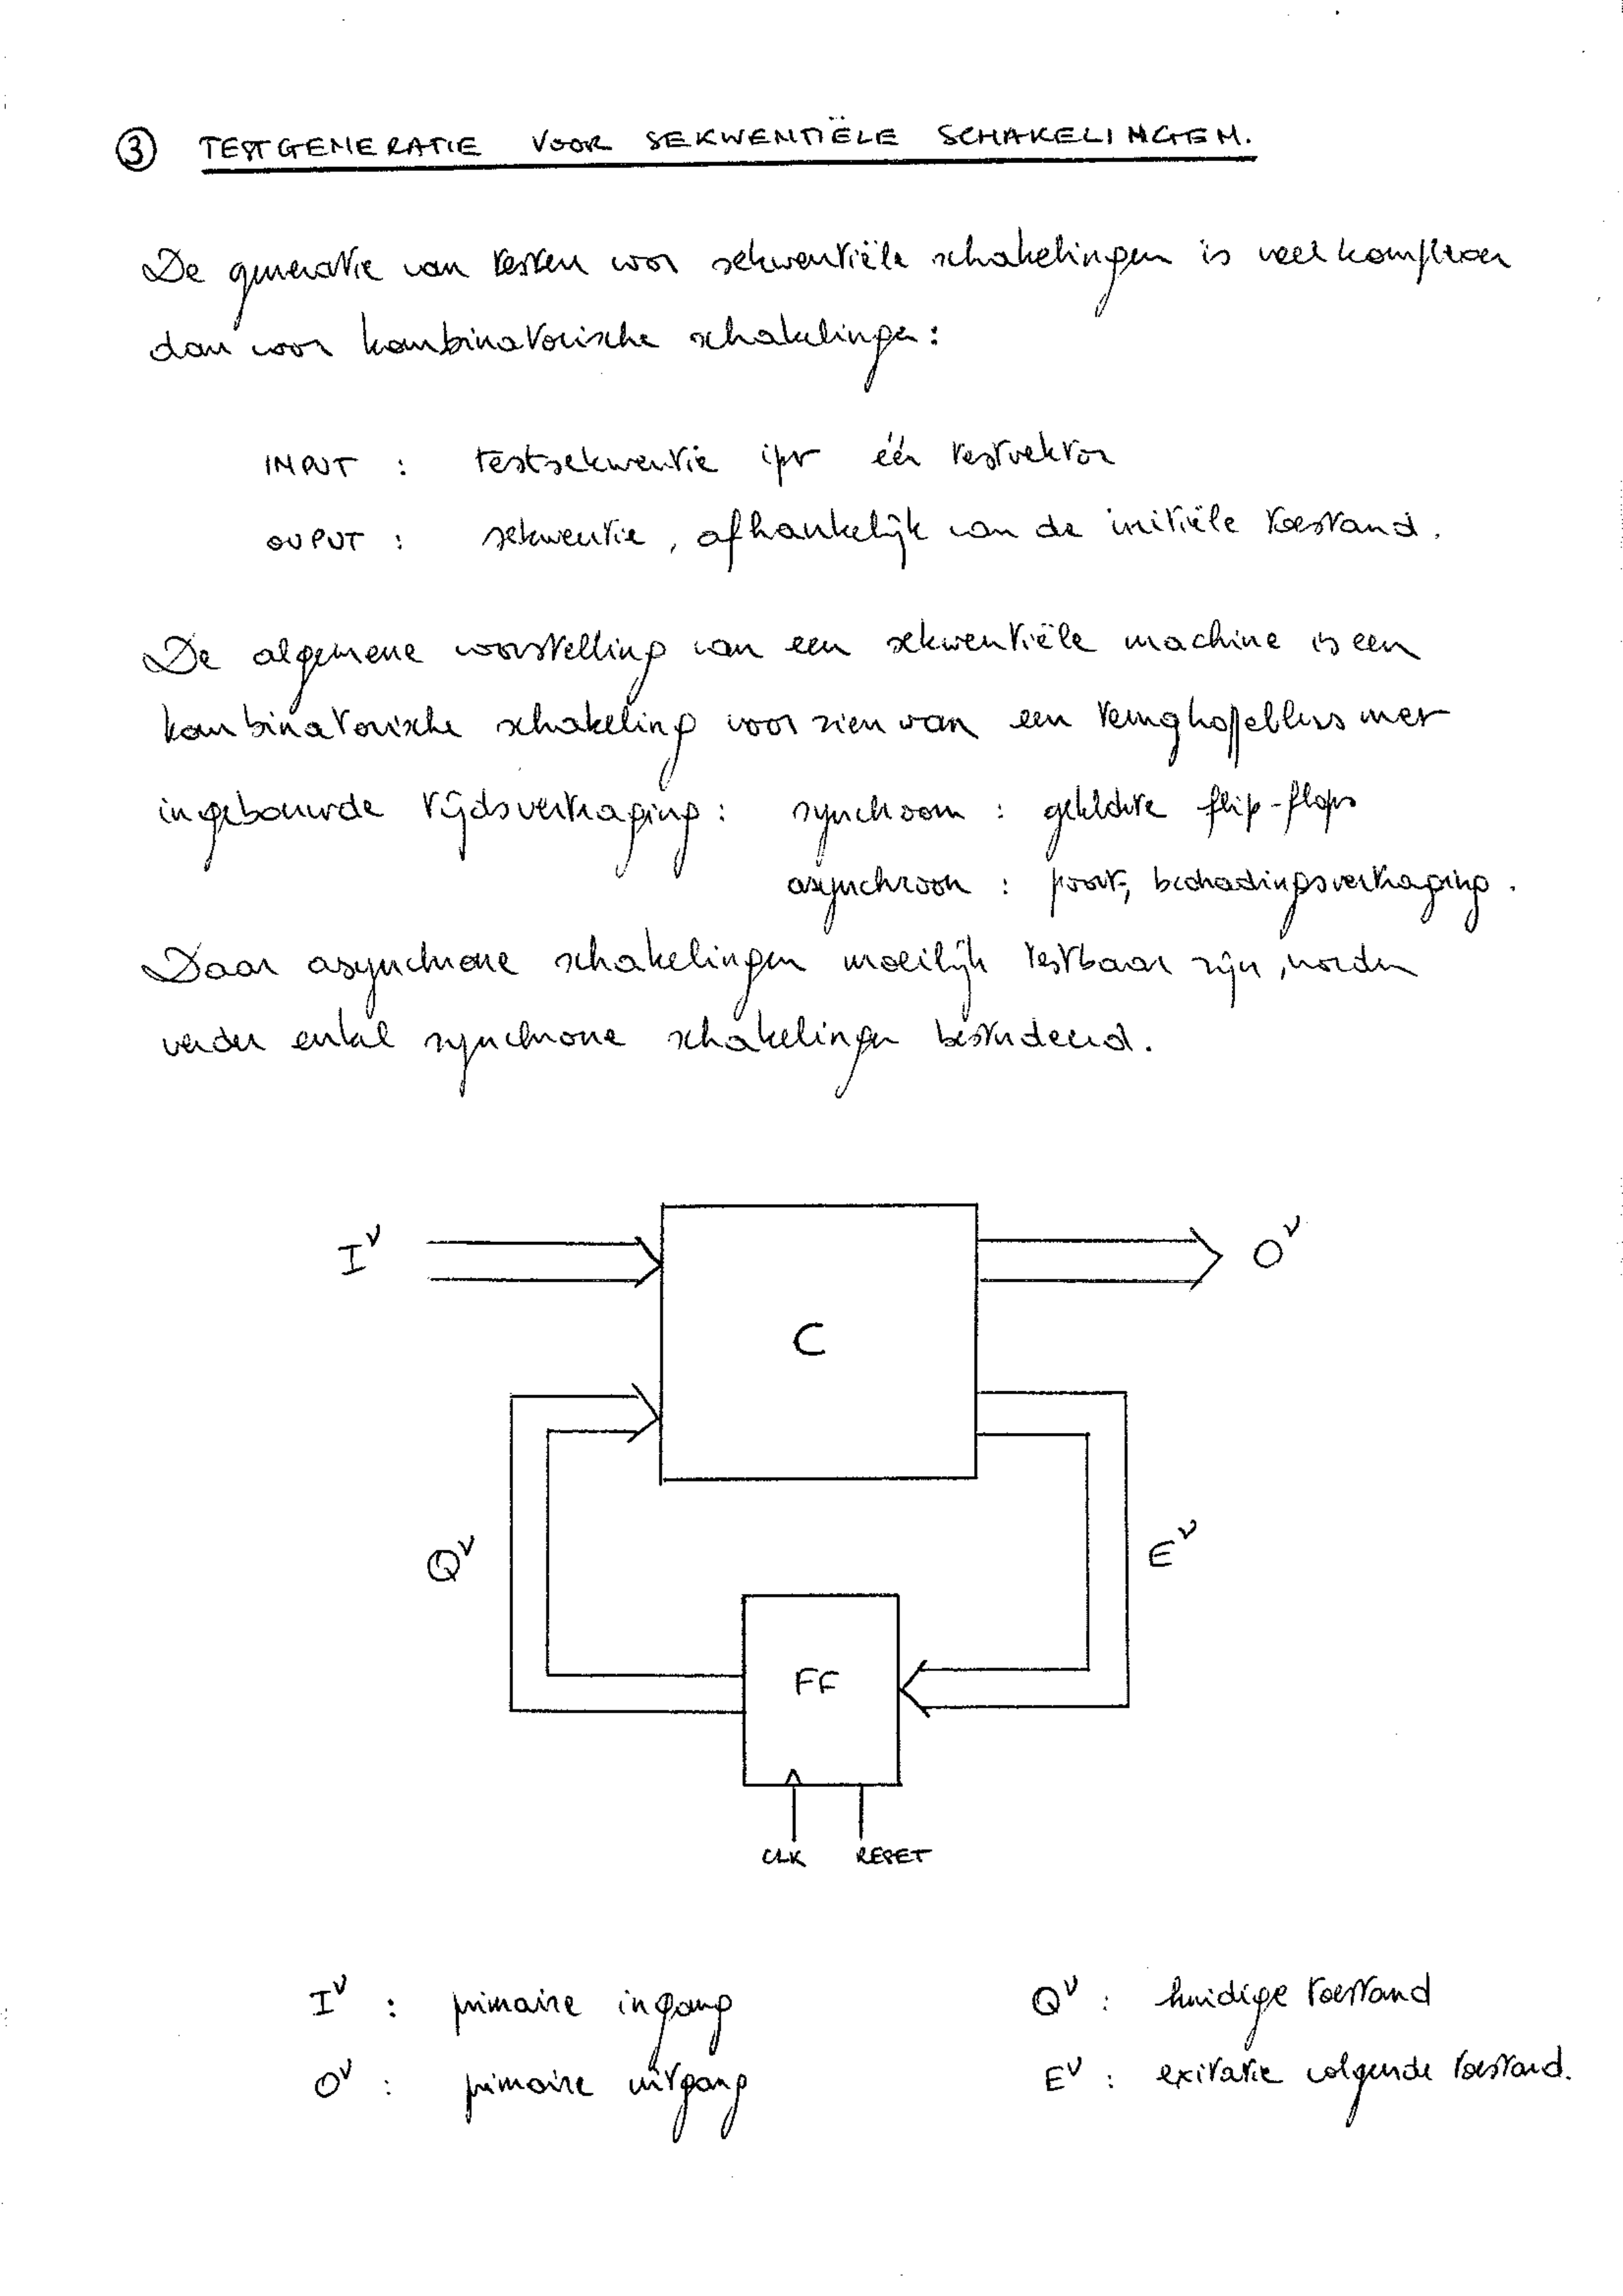 ③ TESTGENERATIE VOOR SEKWENTIËLE SCHAKELINGEN.
De generatie van testen voor sekwentiële schakelingen is veel komplexer
dan voor kombinatorische schakelingen:
INPUT : testsekwentie ipv één testvektor
OUPUT : sekwentie, afhankelijk van de initiële toestand.
De algemene voorstelling van een sekwentiële machine is een
kombinatorische schakeling voorzien van een terugkoppellus met
ingebouwde tijdsvertraging : synchroon : geklokte flip-flops
asynchroon : poort-, bedradingsvertraging.
Daar asynchrone schakelingen moeilijk testbaar zijn, worden
verder enkel synchrone schakelingen bestudeerd.
I^ν
O^ν
C
Q^ν
E^ν
FF
CLK RESET
I^ν : primaire ingang Q^ν : huidige toestand
O^ν : primaire uitgang E^ν : exitatie volgende toestand.